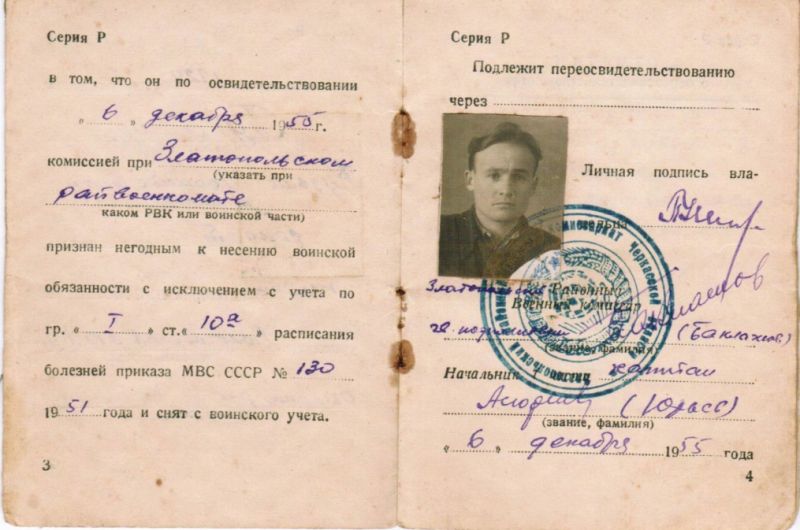 Серия Р
в том, что он по освидетельствовании
„ 6 „ декабря 1955 г.
комиссией при Златопольском
(указать при
райвоенкомате
каком РВК или воинской части)
признан негодным к несению воинской
обязанности с исключением с учета по
гр. « I » ст. « 10а » расписания
болезней приказа МВС СССР № 130
1951 года и снят с воинского учета.
3
Серия Р
Подлежит переосвидетельствованию
через
Личная подпись вла-
дельца
Златопольский Районный
Военный комиссар
(звание, фамилия)
Начальник капитан
(звание, фамилия)
« 6 » декабря 1955 года
4